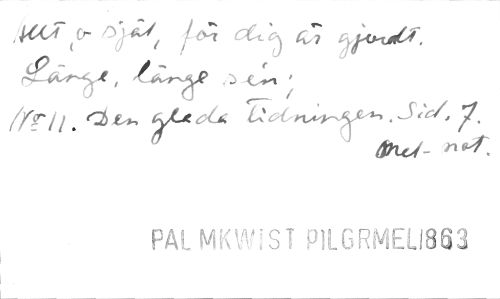 Allt, o själ, för dig är gjordt.
Länge, länge sén;
No 11. Den glada tidningen. Sid. 7.
mel- not.
PALMKWIST PILGRMEL1863